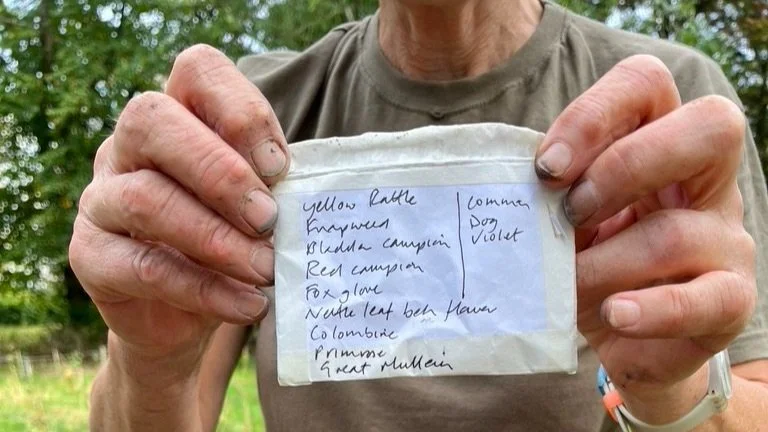 Yellow Rattle
Knapweed
Bladder campion
Red campion
Fox glove
Nettle leaf bell flower
Colombine
Primrose
Great Mullein
Common
Dog
Violet